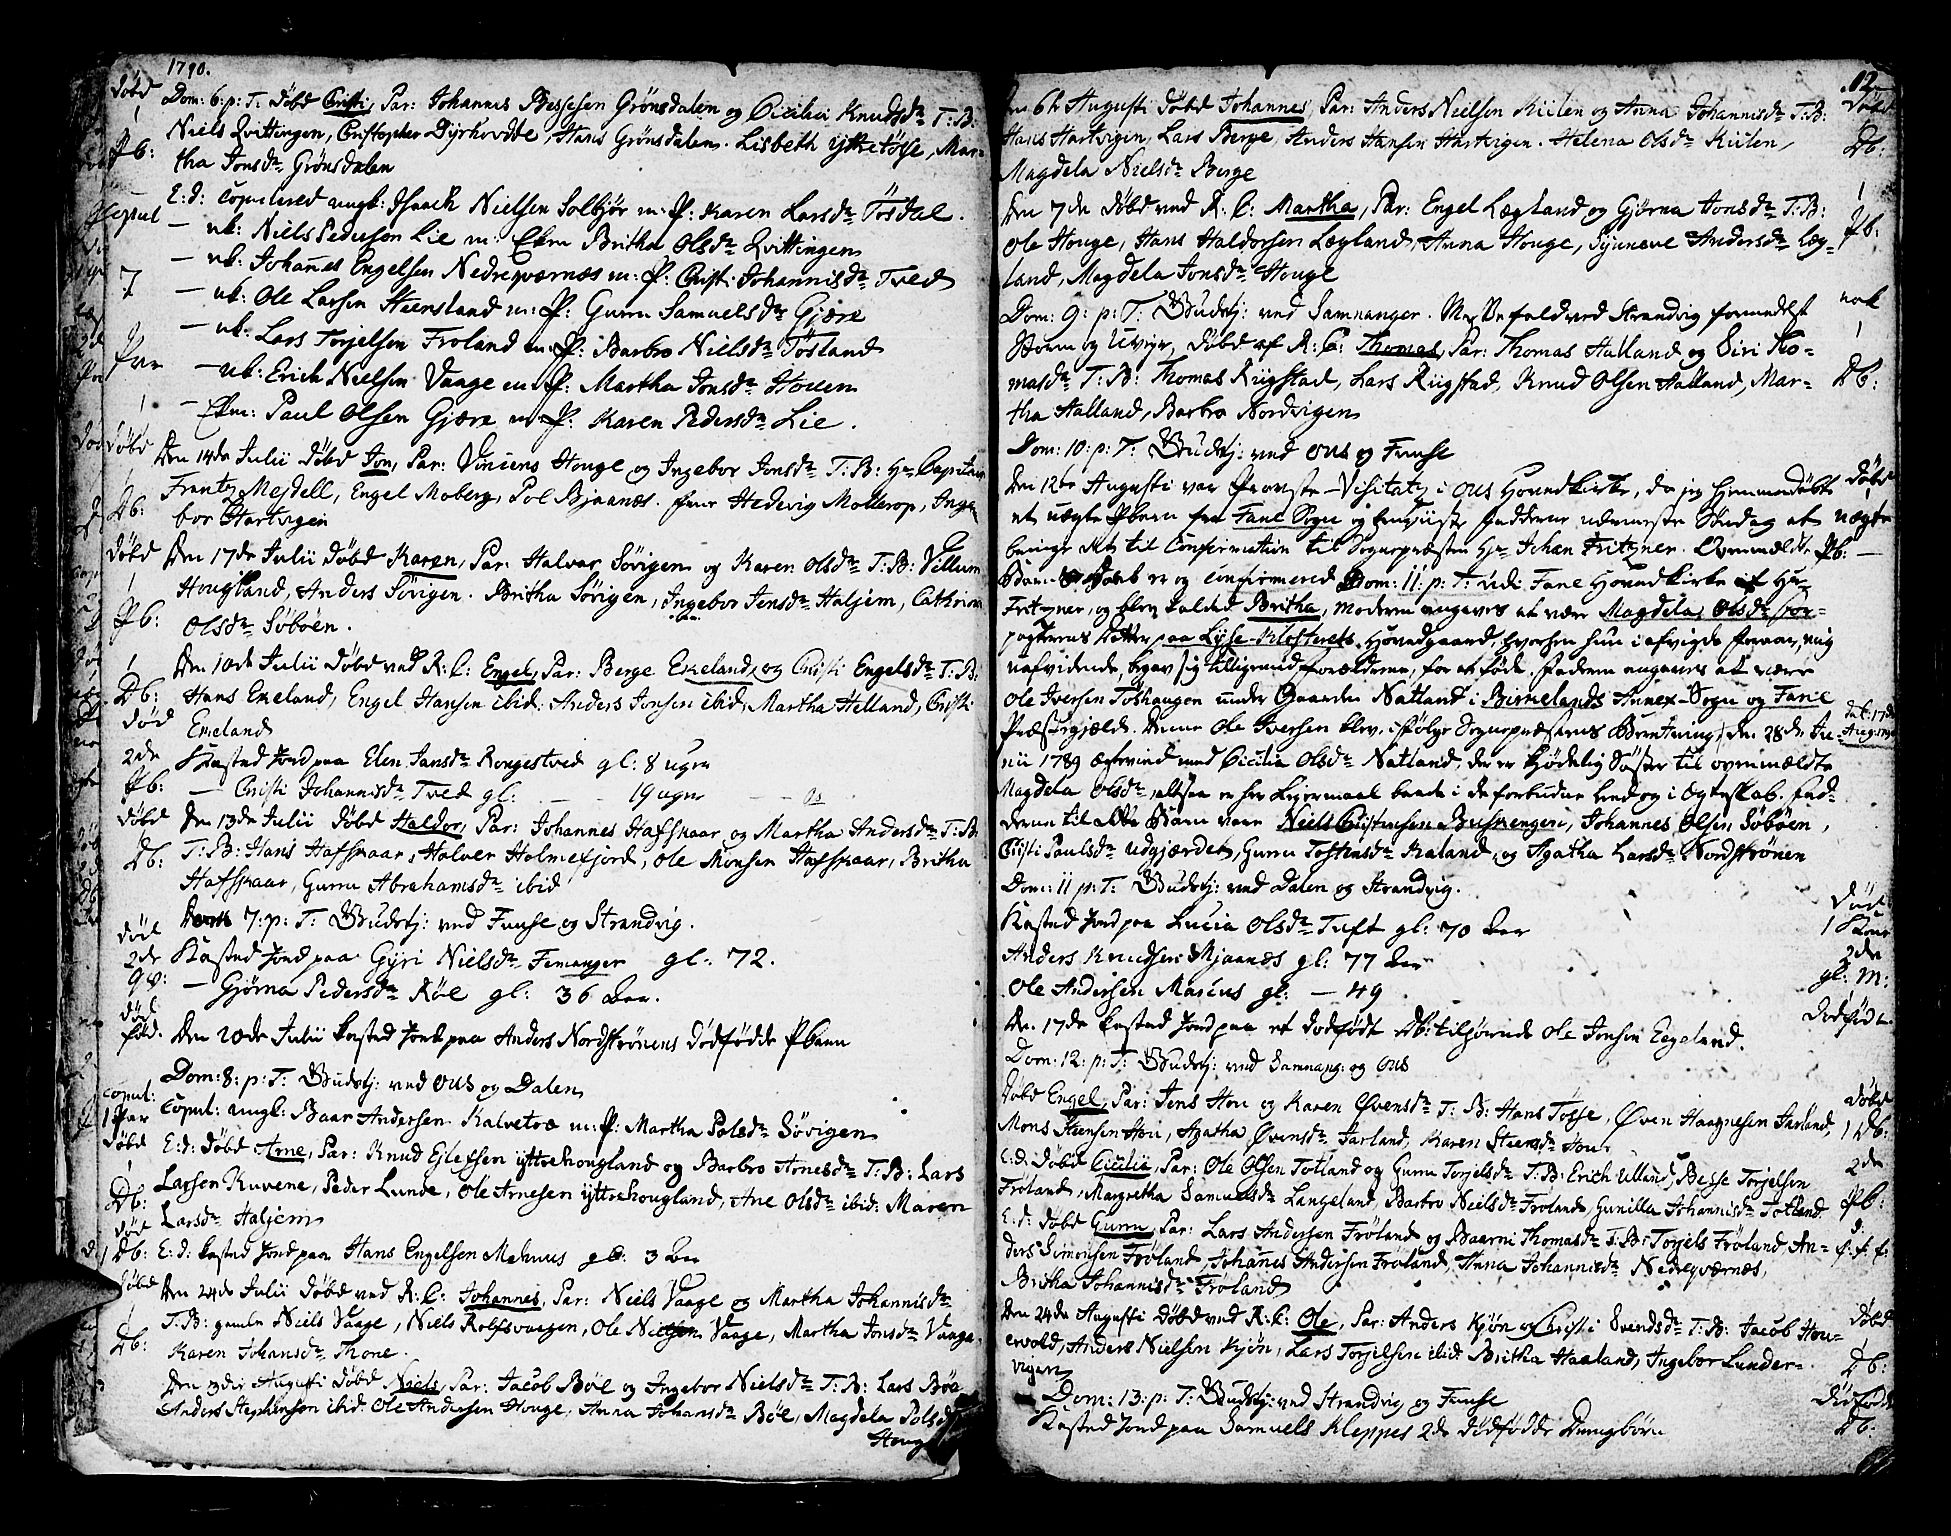 1790.
Dom: 6: p: T: Døbd Cristi, Par: Johannes Bessesen Grønsdalen og Cicilia Knudsdr T: B:
Niels Qvittingen, Christopher Dyrhovdde, Hans Grønsdalen. Lisbeth yttretøsse, Mar-
tha Jonsdr Grønsdalen
E: d: Copulered ungk: Isaach Nielsen Solbjør m: P: Karen Larsdr Tøsdal.
— uk: Niels Pederson Lie m: Ekm Britha Olsdr Qvittingen
— uk: Johannes Engelsen Nedreqværnæs m: P: Cristi Johannisdr Tved
— uk: Ole Larsen Steensland m: P: Gurru Samuelsdr Gjære
— uk: Lars Torjelsen Froland m: P: Barbro Nielsdr Tøsland
— uk: Erich Nielsen Vaage m: P: Martha Jonsdr Houen
— Ekm: Paul Olsen Gjære m: P: Karen Pedersdr Lie.
Den 14de Julii Døbd Jon, Par: Vincens Houge og Ingebor Jonsdr T: B: Hr Capitain
Frantz Mejdell, Engel Moberg, Pol Bjaanæs. Frue Hedevig Mollerop, Inge-
bor Hartvigen
Den 17de Julii Døbd Karen, Par: Halvor Sørigen og Karen Olsdr T: B: Villum
Hougland, Anders Sørigen. Britha Sørigen, Ingebor Jensdr Haljem, Cathrina
Olsdr Søbøen.
Den 10de Julii Døbd ved R: C: Engel, Par: Berge Ekeland, og Cristi Engelsdr T: B:
Hans Ekeland, Engel Hansen ibid: Anders Jonsen ibid: Martha Helland, Cristi
Ekeland
Kasted Jord paa Elen Jansdr Rongestved gl: 8 uger
— Cristi Johannisdr Tved gl: — — 19 uger
Den 13de Julii Døbd Haldor, Par: Johannes Hafskaar og Martha Andersdr T: B:
T: B: Hans Hafskaar, Halvor Holmefjord, Ole Monsen Hafskaar, Britha
Hafskaar, Gurru Abrahamsdr ibid
7: p: T: Gudstj: ved Fuuse og Strandvig.
Kasted Jord paa Gyri Nielsdr Femanger gl: 72.
— Gjørna Pedersdr Røe gl: 36 aar.
Den 20de Julii kasted Jord paa Anders Nordstrønens dødfødde Pbarn
Dom: 8: p: T: Gudstj: ved Ous og Dalen
Copul: ungk: Baar Andersen Kalvetræ m: P: Martha Polsdr Sørigen
E: d: Døbd Arne, Par: Knud Ejlefsen yttrehougland og Barbro Arnesdr T: B: Lars
Larsen Kuvene, Peder Lunde, Ole Arnesen yttrehougland, Ane Olsdr ibid: Maren
Larsdr Haljem
E: d: kasted Jord paa Hans Engelsen Mehuus gl: 3 aar
Den 24de Julii Døbd ved R: C: Johannes, Par: Niels Vaage og Martha Johannisdr
T: B: gamle Niels Vaage, Niels Rolfsvaagen, Ole Nielsen Vaage, Martha Jonsdr Vaage
Karen Johansdr Thone.
Den 3die Augusti Døbd Niels, Par: Jacob Bøe og Ingebor Nielsdr T: B: Lars Bøe
Anders Stephensen ibid: Ole Andersen Houge, Anna Johansdr Bøe, Magdela Polsdr
Houge
12
Den 6te Augusti Døbd Johannes, Par: Anders Nielsen Kiilen og Anna Johannisdr T: B:
Hans Hartvigen, Lars Berge, Anders Hansen Hartvigen. Helena Olsdr Kiilen,
Magdela Nielsdr Berge
Den 7de Døbd ved R: C: Martha, Par: Engel Lægland og Gjørna Jonsdr T: B:
Ole Houge, Hans Haldorsen Lægland, Anna Houge, Synneve Andersdr Læg-
land, Magdela Jonsdr Houge
Dom: 9: p: T: Gudstj: ved Samnanger. Messefald ved Strandvig formedelst
Storm og Uveyr, Døbd af R: C: Thomas, Par: Thomas Halland og Siri Tho-
masdr T: B: Thomas Riigstad, Lars Riigstad, Knud Olsen Halland, Mar-
tha Halland, Barbro Nordvigen
Dom: 10: p: T: Gudstj: ved Ous og Fuuse
Den 12te Augusti var Provste-Visitatz i Ous Hovedkirke, da jeg hjemmedøbte
et uægte Pbarn fra Fane Sogn og Faddere næste Søndag at
bringe det til Confirmation til Sognepræsten Hr Johan Fritzner. Ovenmeldte
Barn er og confirmered Dom: 11: p: T: ved Fane Hovedkirke af Hr
Fritzner, og blev kalded Britha, moderen angaves at være Magdela Olsdr for-
pagterens Datter paa Lyse-Klosterets Hovedgaard, hvorhen hun i afvigte foraar, mig
uafvidende, begav sig til forældrene, for at føde. Faderen angaves at være
Ole Iversen Toshaugen under Gaarden Natland i Birkelands Annex-Sogn og Fane
Præstegjeld. Denne Ole Iversen blev, ifølge Sognepræstens Beretning, den 28de Ju-
nii 1789 ægteviet med Cicilia Olsdr Natland, der er kjødelig Søster til ovenmeldte
Magdela Olsdr, altsaa er her Lejermaal baade i de forbudne leed og i Ægteskab. Fad-
derne til dette Barn vare Niels Cristensen Buskengen, Johannes Olsen Søbøen,
Cristi Paulsdr Udgjærdet, Gurru Tostensdr Kaland, og Agatha Larsdr Nordstrønen
Dom: 11 p: T: Gudstj: ved Dalen og Strandvig.
Kasted Jord paa Lucia Olsdr Tuft gl: 70 aar
Anders Knudsen Mjaanæs gl: 77 aar
Ole Andersen Marhus gl: — 49
Den 17de kasted Jord paa et dødfødt Db: tilhørende Ole Jonsen Eegeland.
Dom: 12: p: T: Gudstj: ved Samnang: og Ous
Døbd Engel, Par: Jens Hou og Karen Øvensdr T: B: Hans Tøsse, Øven Haagnesen Jarland,
Mons Steensen Hou, Agatha Øvensdr Jarland, Karen Steensdr Hou
E: d: Døbd Cicilia, Par: Ole Olsen Totland og Gurru Torjelsdr T: B: Erich Ulland, Besse Torjelsen
Frøland, Margretha Samuelsdr Langeland, Barbro Nielsdr Frøland, Gunilla Johannisdr Totland
E: d: Døbd Gurru, Par: Lars Andersen Frøland og Baarni Thomasdr T: B: Torjels Frøland, An-
ders Simonsen Frøland, Johannes Andersen Frøland, Anna Johannisdr Nedreqværnæs,
Britha Johannisdr Frøland
Den 24de Augusti Døbd ved R: C: Ole, Par: Anders Kjøn og Cristi Svendsdr T: B: Jacob Hou-
ervold, Anders Nielsen Kjøn, Lars Torjelsen ibid: Britha Haaland, Ingebor Lunder-
vigen
Dom: 13: p: T: Gudstj: ved Strandvig og Fuuse
Kasted Jord paa Samuels Kleppes 2de dødfødde Drengbørn